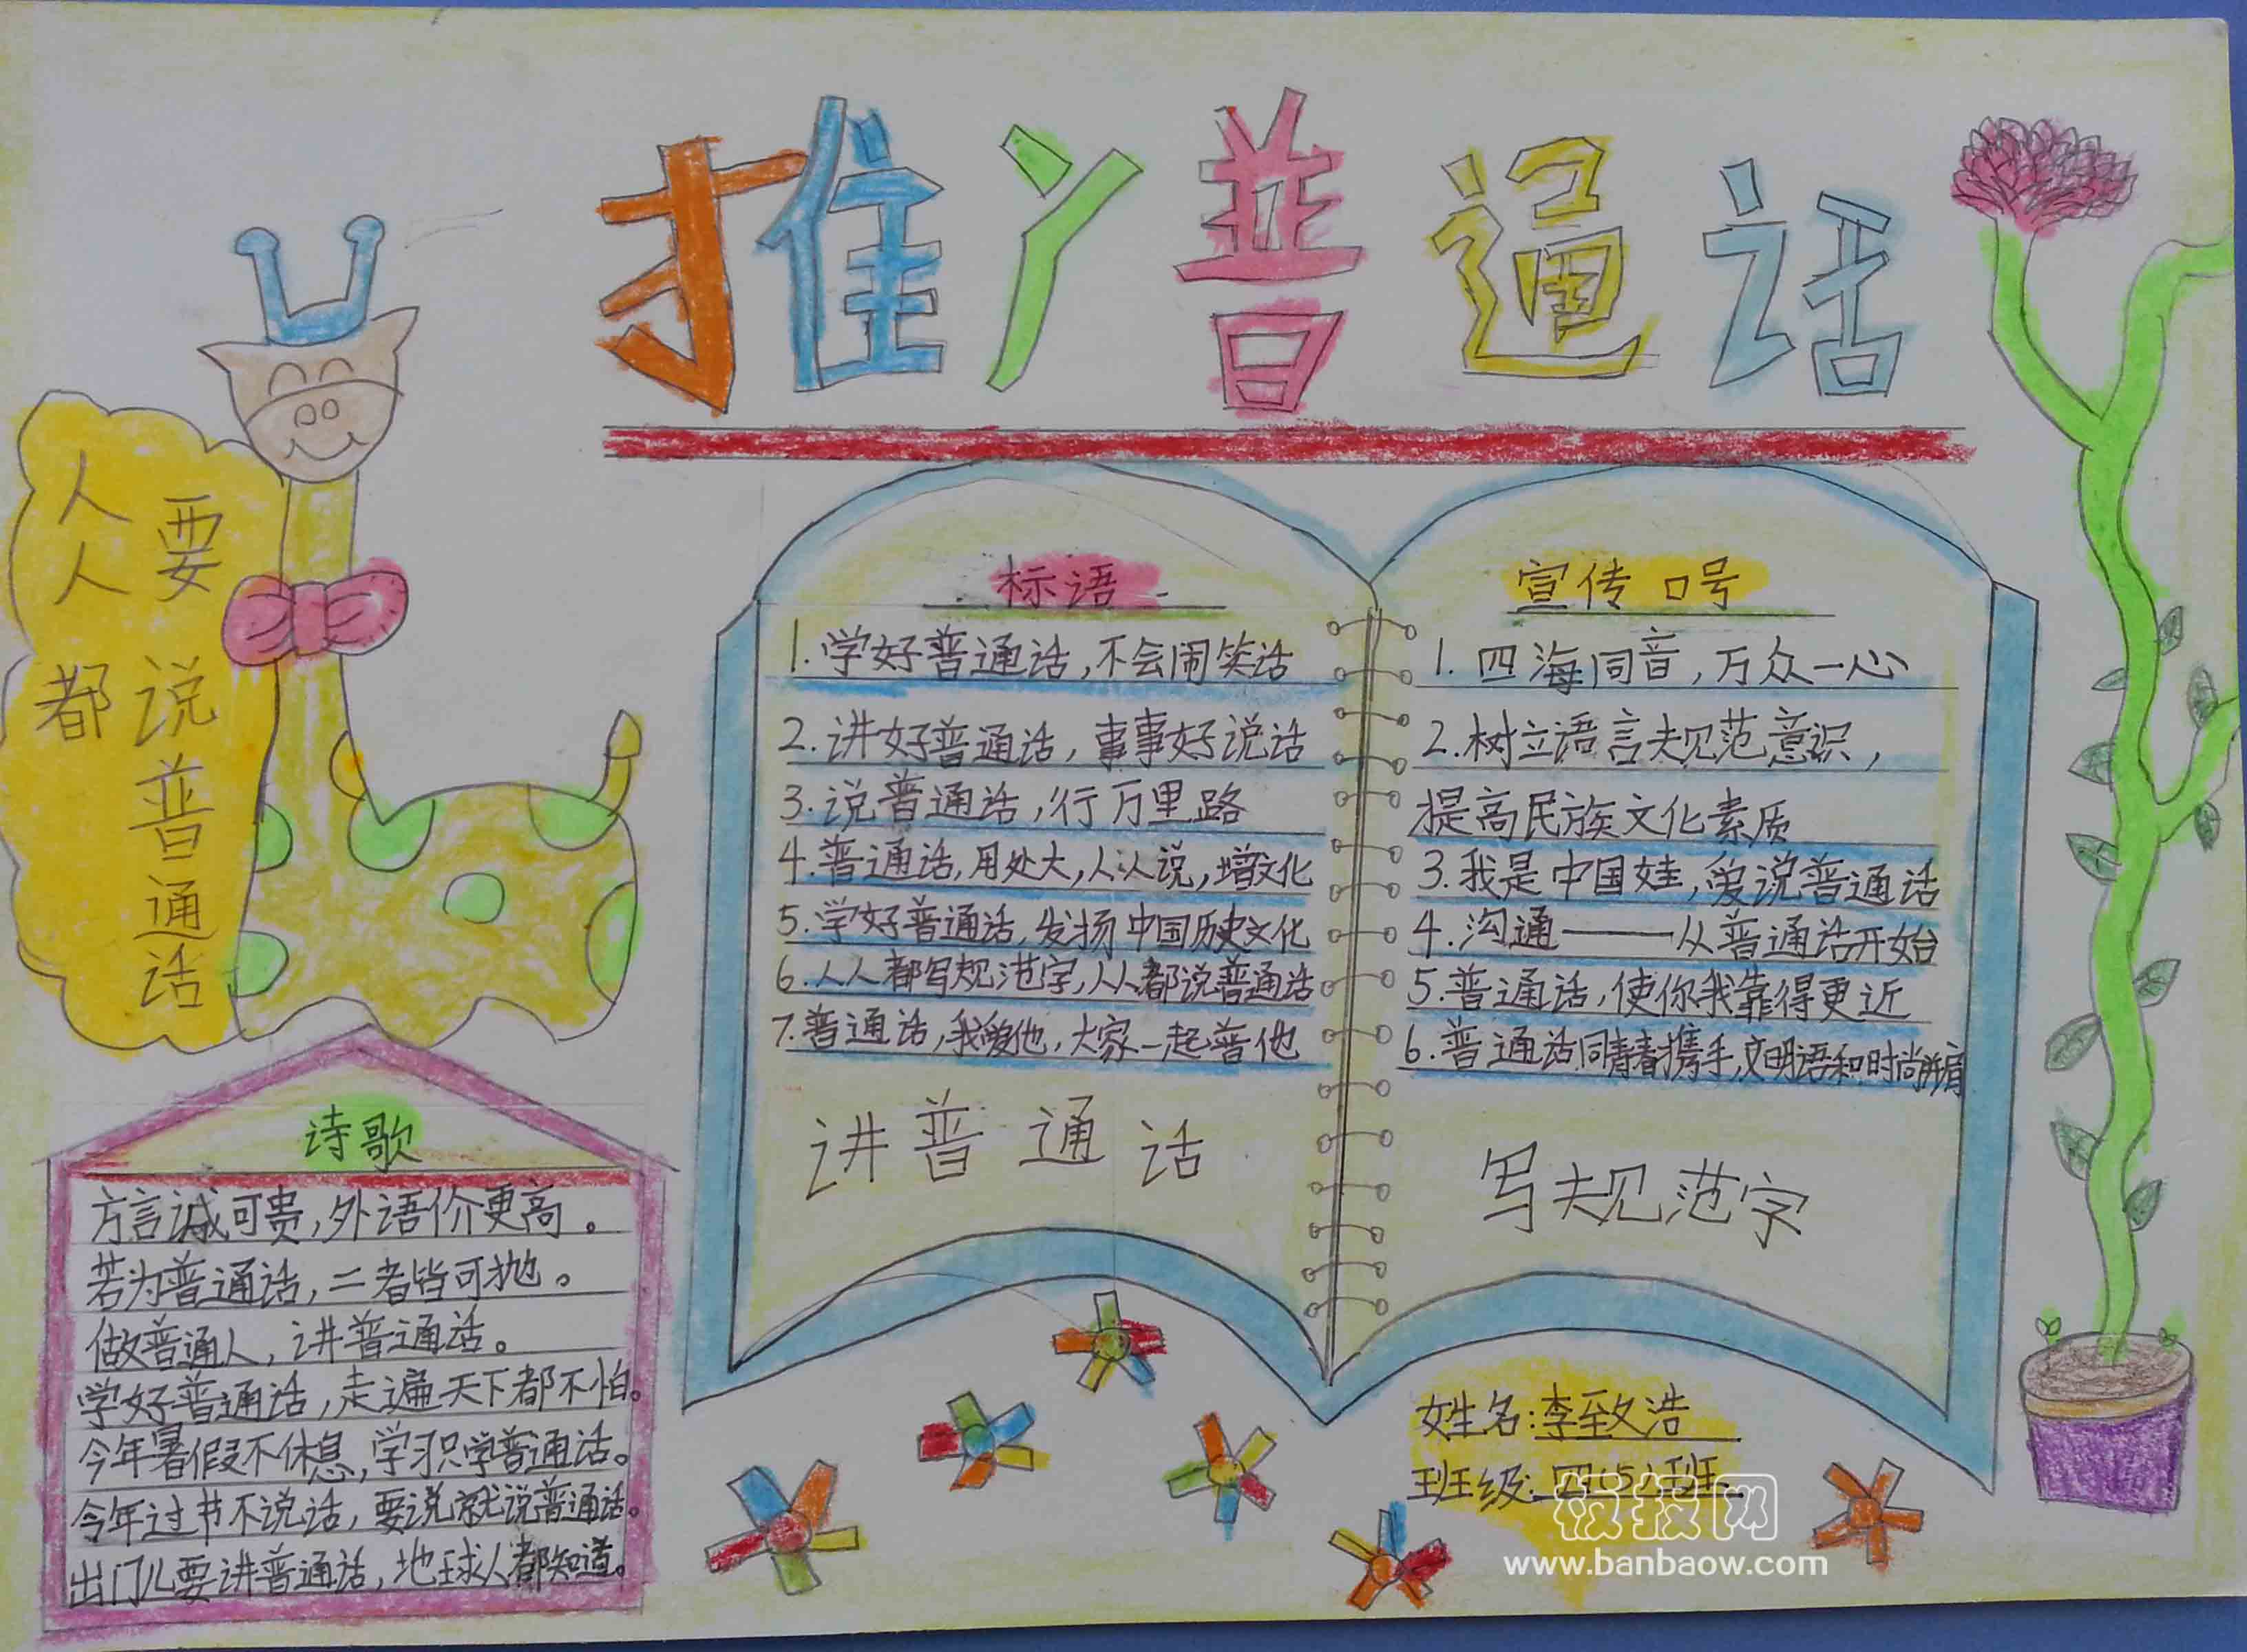 推广普通话
人人
要
都
说普通话
标语
1.学好普通话,不会闹笑话
2.讲好普通话,事事好说话
3.说普通话,行万里路
4.普通话,用处大,人人说,增文化
5.学好普通话,发扬中国历史文化
6.人人都写规范字,人人都说普通话
7.普通话,我爱他,大家一起普他
讲普通话
宣传口号
1.四海同音,万众一心
2.树立语言规范意识,
提高民族文化素质
3.我是中国娃,爱说普通话
4.沟通——从普通话开始
5.普通话,使你我靠得更近
6.普通话同青春携手,文明语和时尚并肩
写规范字
诗歌
方言诚可贵,外语价更高。
若为普通话,二者皆可抛。
做普通人,讲普通话。
学好普通话,走遍天下都不怕。
今年暑假不休息,学习只学普通话。
今年过节不说话,要说就说普通话。
出门儿要讲普通话,地球人都知道。
姓名:李致浩
班级:四
班
板报网
www.banbaow.com